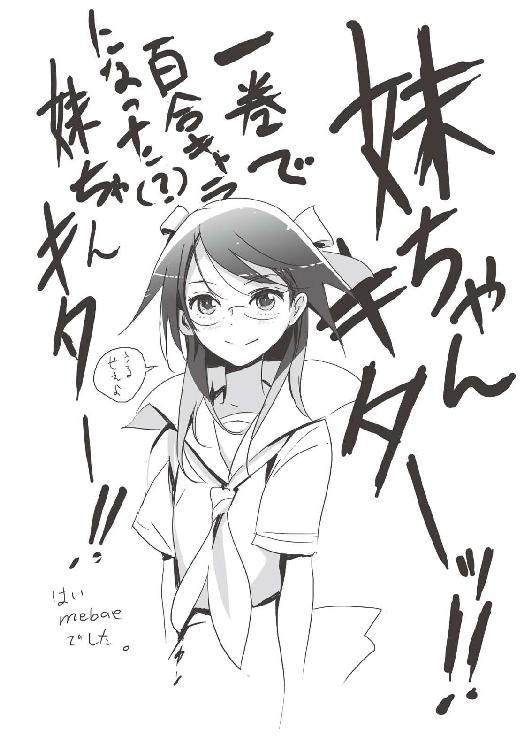 妹ちゃん
キターッ!!
一巻で
百合キャラ
になった(?)
妹ちゃん
キター!!
うるせえよ
はい
mebae
でした。